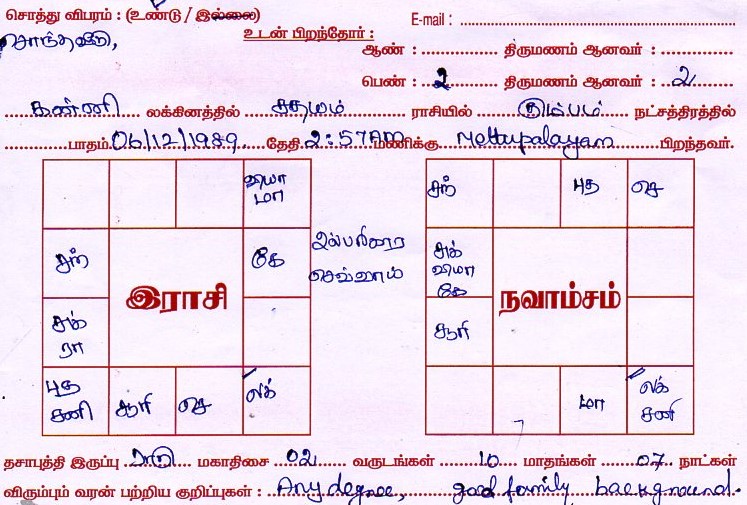 சொத்து விபரம் : (உண்டு / இல்லை) E-mail :
சொந்தவீடு, உடன் பிறந்தோர் : ஆண் : திருமணம் ஆனவர் :
பெண் : 2 திருமணம் ஆனவர் : 2
கன்னி லக்கினத்தில் சதயம் ராசியில் கும்பம் நட்சத்திரத்தில்
பாதம் 06/12/1989 தேதி 2:57AM மணிக்கு Mettupalayam பிறந்தவர்.
சந் கே
செவ்வாய்
சுக் ரா
இராசி
புத சனி சூரி செ லக்
சந் புத செ
சுக் கே
சூரி
நவாம்சம்
மா லக் சனி
தசாபுத்தி இருப்பு ராகு மகாதிசை 02 வருடங்கள் 10 மாதங்கள் 07 நாட்கள்
விரும்பும் வரன் பற்றிய குறிப்புகள் : Any degree, good family background.